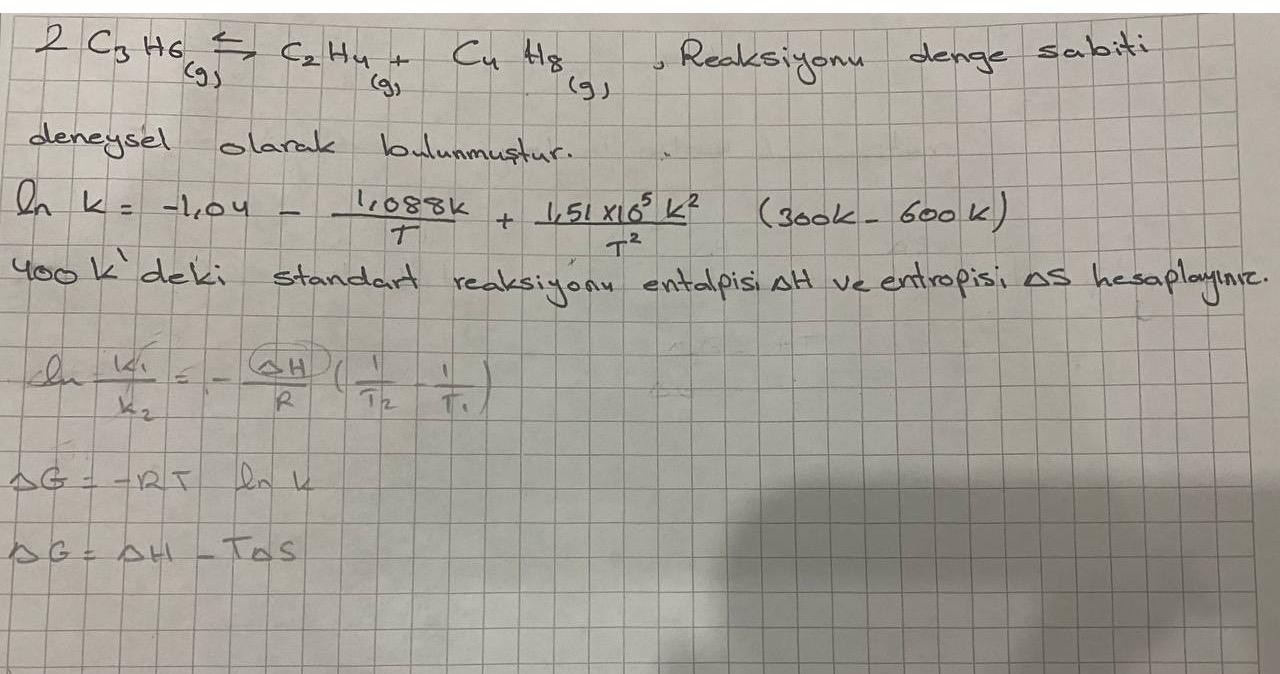 2 C3 H6(g) ⇌ C2 H4(g) + C4 H8(g) , Reaksiyonu denge sabiti
deneysel olarak bulunmuştur.
ln k = -1,04 - 1,088k/T + 1,51 x10^5 k^2/T^2 (300k - 600k)
400 k' deki standart reaksiyonu entalpisi ΔH ve entropisi ΔS hesaplayınız.
ln K1/K2 = - ΔH/R (1/T2 - 1/T1)
ΔG = -RT ln K
ΔG = ΔH - TΔS